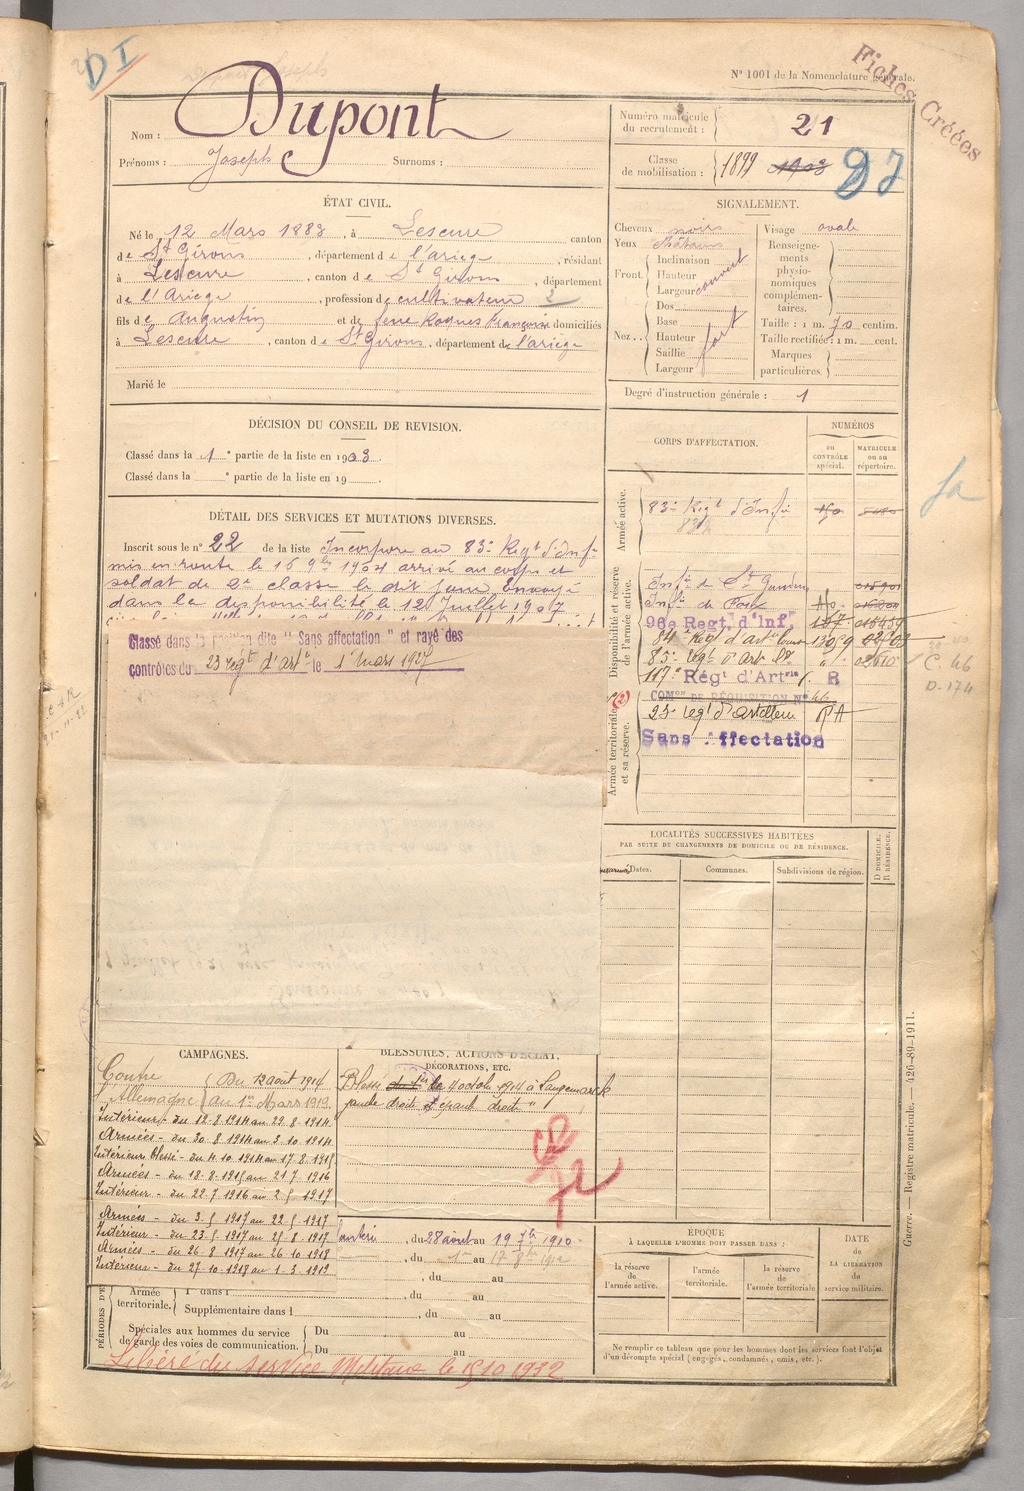 DI
N° 1001 de la Nomenclature générale.
Fiches Créées
Nom : Dupont
Prénoms : Joseph Surnoms :
Numéro matricule du recrutement : 21
Classe de mobilisation : 1899 1903
ÉTAT CIVIL.
Né le 12 Mars 1883, à Lescure canton
de St Girons, département de l'ariege, résidant
à Lescure, canton de St Girons, département
de l'Ariege, profession de cultivateur 2
fils de Augustin et de feue Roques Françoise domiciliés
à Lescure, canton de St Girons, département de l'ariège
Marié le
SIGNALEMENT.
Cheveux noirs
Yeux châtains
Front. Inclinaison
Hauteur
Largeur
couvert
Nez.. Dos
Base
Hauteur
Saillie
Largeur
fort
Visage ovale
Renseignements physionomiques complémentaires.
Taille : 1 m. 70 centim.
Taille rectifiée : 1 m. cent.
Marques particulières.
Degré d'instruction générale : 1
DÉCISION DU CONSEIL DE REVISION.
Classé dans la 1e partie de la liste en 1903.
Classé dans la e partie de la liste en 19
DÉTAIL DES SERVICES ET MUTATIONS DIVERSES.
Inscrit sous le n° 22 de la liste Incorporé au 83e Regt d'Infie
mis en route le 16 9bre 1904 arrivé au corps et
soldat de 2e classe le dit jour. Envoyé
dans la disponibilité le 12 Juillet 1907
Classé dans la position dite "Sans affectation" et rayé des
contrôles du 23 régt d'artie le 1er mars 1927
CORPS D'AFFECTATION.
NUMÉROS
DU CONTRÔLE spécial.
MATRICULE OU AU répertoire.
Armée active.
83e Regt d'Infie
83A
Disponibilité et réserve de l'armée active.
Infie de St Gaudens
Infie de
96e Regt. d'Inf.
84e Regt d'artie lourde 13059
85e regt d'art
117e Régt d'Artrie R
Armée territoriale et sa réserve.
(2)
COMon DE RÉQUISITION N° 46
23e regt d'artillerie
Sans Affectation
C. 46
D. 174
LOCALITÉS SUCCESSIVES HABITÉES
PAR SUITE DE CHANGEMENTS DE DOMICILE OU DE RÉSIDENCE.
Dates.
Communes.
Subdivisions de région.
D DOMICILE.
R RÉSIDENCE.
CAMPAGNES.
Contre Allemagne
Du 12 août 1914
au 1er Mars 1919.
Intérieur - du 12.8.1914 au 29.8.1914
Armées - du 30.8.1914 au 3.10.1914
Intérieur blessé - du 4.10.1914 au 17.8.1915
Armées - du 18.8.1915 au 21.7.1916
Intérieur - du 22.7.1916 au 2.5.1917
Armées - du 3.5.1917 au 22.5.1917
Intérieur - du 23.5.1917 au 25.8.1917
Armées - du 26.8.1917 au 26.10.1918
Intérieur - du 27.10.1918 au 1.3.1919
BLESSURES, ACTIONS D'ÉCLAT,
DÉCORATIONS, ETC.
Blessé le 4 octobre 1914 à Langemarck
droit et épaule droite
, du 28 août au 19 7bre 1910
, du 1er au 17 8bre 1912
, du au
PÉRIODES D'E
Armée territoriale.
1re dans l , du au
Supplémentaire dans l , du au
Spéciales aux hommes du service de garde des voies de communication.
Du au
Du au
Libéré du service Militaire le 15.10.1932
ÉPOQUE
À LAQUELLE L'HOMME DOIT PASSER DANS :
la réserve de l'armée active.
l'armée territoriale.
la réserve de l'armée territoriale
DATE de LA LIBÉRATION du service militaire.
Ne remplir ce tableau que pour les hommes dont les services font l'objet
d'un décompte spécial (engagés, condamnés, omis, etc.).
Guerre. — Registre matricule. — 426-89-1911.